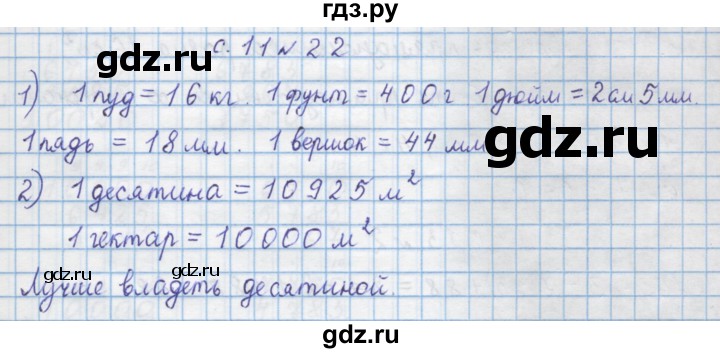 гдз.ру
с. 11 № 22
1) 1 пуд = 16 кг. 1 фунт = 400 г 1 дюйм = 2 см 5 мм.
1 пядь = 18 мм. 1 вершок = 44 мм
2) 1 десятина = 10 925 м²
1 гектар = 10 000 м²
Лучше владеть десятиной.
gdz.ru gdz.ru
gdz.ru gdz.ru
gdz.ru gdz.ru
gdz.ru